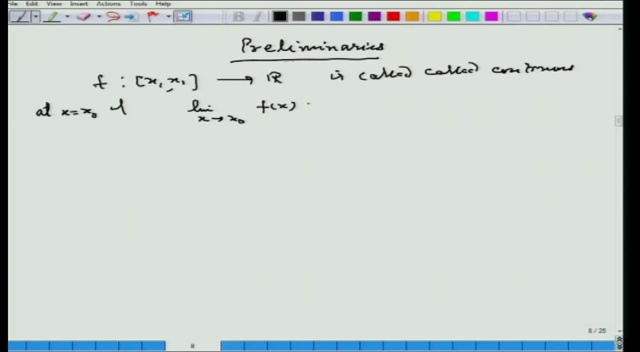 File Edit View Insert Actions Tools Help
Preliminaries
f : [x, x₁] ⟶ ℝ is called called continuous
at x=x₀ if lim x→x₀ f(x)
8 / 25
8